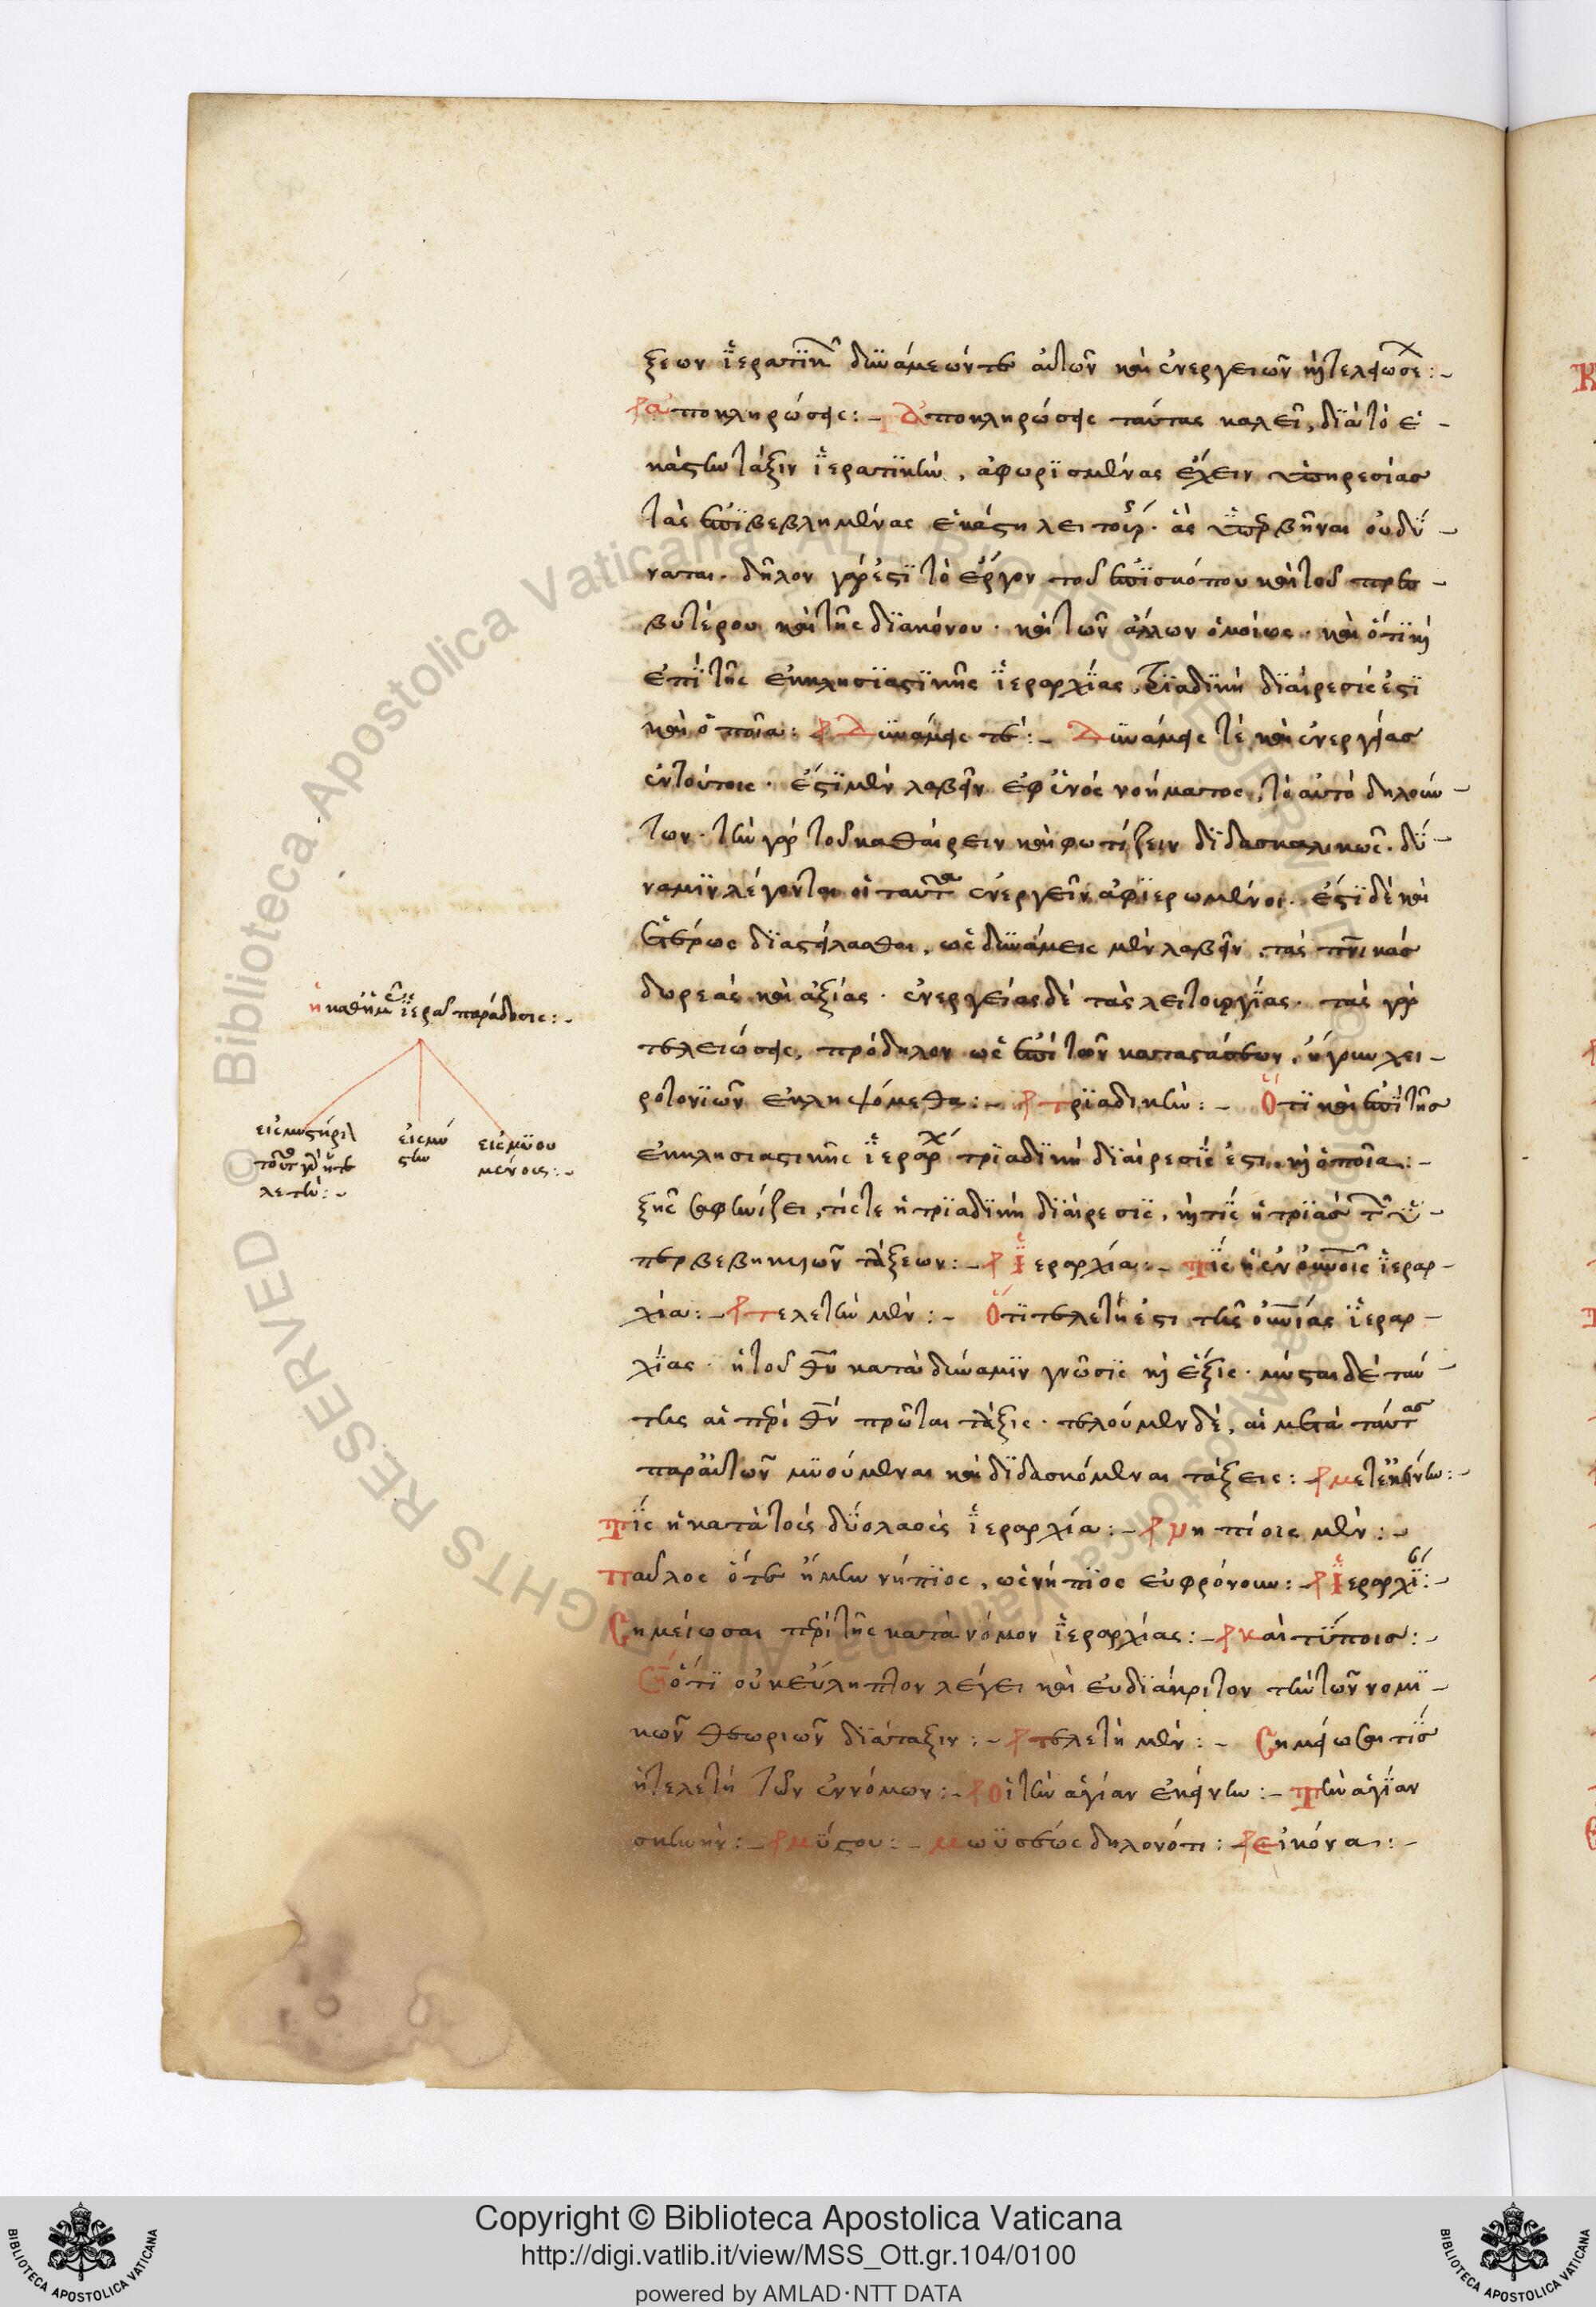 ξεων ἱερατικ δυνάμεών τε αὐτῶν καὶ ἐνεργειῶν καὶ τελειώσε:-
ἀποκληρώσεις:- Ἀποκληρώσεις ταύτας καλεῖ, διὰ τὸ ἑ-
κάστην τάξιν ἱερατικὴν, ἀφωρισμένας ἔχειν ὑπηρεσίας
τὰς ἐπιβεβλημένας ἑκάστη λειτουργ. ἃς ὑπερβῆναι οὐ δύ-
ναται. δῆλον γάρ ἐστι τὸ ἔργον τοῦ ἐπισκόπου καὶ τοῦ πρεσ-
βυτέρου καὶ τῆς διακόνου. καὶ τῶν ἄλλων ὁμοίως. καὶ ὅτι καὶ
ἐπὶ τῆς ἐκκλησιαστικῆς ἱεραρχίας, τριαδικὴ διαίρεσίς ἐστι
καὶ ὁποῖα: Δυνάμεις τε:- Δυνάμεις τὲ καὶ ἐνεργείας
ἐν τούτοις. ἔστι μὲν λαβεῖν ἐφ' ἑνὸς νοήματος, τὸ αὐτὸ δηλούν-
των. τὴν γὰρ τοῦ καθαίρειν καὶ φωτίζειν διδασκαλικῶς. δύ-
ναμιν λέγονται οἱ ταῦτα ἐνεργεῖν ἀφιερωμένοι. ἔστι δὲ καὶ
ἑτέρως διαστείλασθαι, ὡς δυνάμεις μὲν λαβεῖν, τὰς πνικὰς
δωρεὰς καὶ ἀξίας. ἐνεργείας δὲ τὰς λειτουργίας. τὰς γὰρ
τελειώσεις, πρόδηλον ὡς ἐπὶ τῶν καταστάσεων, ἤγουν χει-
ροτονιῶν ἐκληψόμεθα:- τριαδικὴν:- Ὅτι καὶ ἐπὶ τῆς
ἐκκλησιαστικῆς ἱεραρχ τριαδικὴ διαίρεσίς ἐστι, καὶ ὁποῖα:-
ξῆς σαφηνίζει, τίς τε ἡ τριαδικὴ διαίρεσις, καὶ τίς ἡ τριὰς τῶν ὑ-
περβεβηκυιῶν τάξεων:- Ἱεραρχία:- Τίς ἡ ἐν οὐνοῖς ἱεραρ-
χία:- τελετὴν μὲν:- Ὅτι τελετή ἐστι τῆς οὐνίας ἱεραρ-
χίας. ἡ τοῦ θῦ κατὰ δύναμιν γνῶσις καὶ ἕξις. μύσται δὲ ταύ
της αἱ περὶ θν πρῶται τάξεις. τελούμεναι δὲ, αἱ μετὰ ταύτας
παρ' αὐτῶν μυούμεναι καὶ διδασκόμεναι τάξεις:
Τίς ἡ κατὰ τοὺς δύο λαοὺς ἱεραρχία:- νηπίοις μὲν:-
Παῦλος ὅτε ἤμην νήπιος, ὡς νήπιος ἐφρόνουν:- Ἱεραρχί:-
Σημείωσαι περὶ τῆς κατὰ νόμον ἱεραρχίας:- καὶ τύποις:-
Ση ὅτι οὐκ εὔληπτον λέγει καὶ εὐδιάκριτον τὴν τῶν νομι-
κῶν θεωριῶν διάταξιν:- τελετὴ μὲν:- Σημείωσαι τίς
ἡ τελετὴ τῶν ἐν νόμων:- οἱ τὴν ἁγίαν ἐκείνην:- Τὴν ἁγίαν
σκηνὴν:- μύστου:- Μωϋσέως δηλονότι:- εἰκόνα:-
ἡ καθ' ἡμᾶς ἱερὰ παράδοσις:-
εἰς μυστήρι
λετὴν:-
εἰς μύ
στην
εἰς μυου
μένοις:-
Copyright © Biblioteca Apostolica Vaticana
http://digi.vatlib.it/view/MSS_Ott.gr.104/0100
powered by AMLAD·NTT DATA